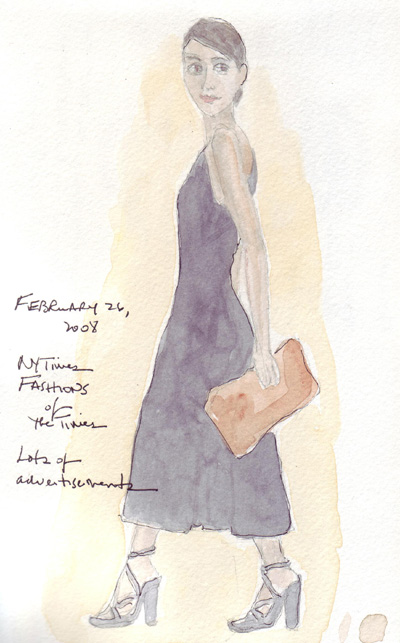 FEBRUARY 26,
2008
NYTimes
FASHIONS
of
the Times
Lots of
advertisements